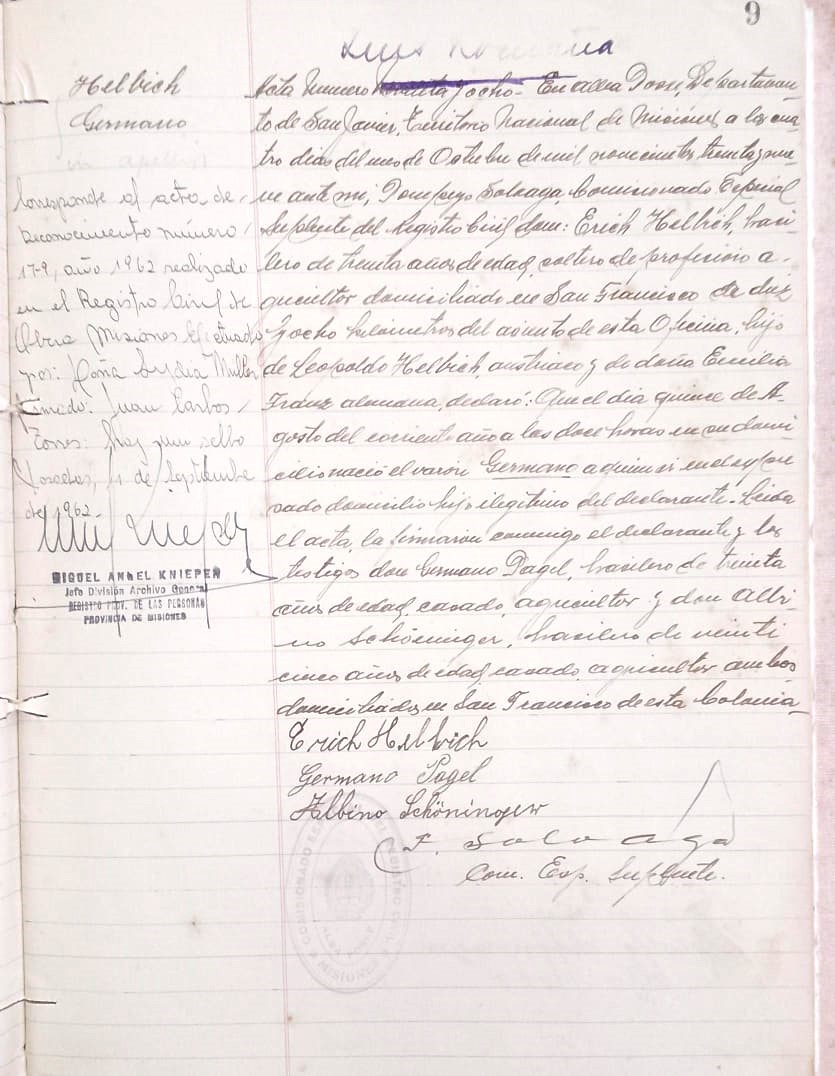 9
Helbich
Germano
Corresponde al acta de
Reconocimiento número
17-9, año 1962 realizado
en el Registro Civil de
Obera Misiones Efectuado
por: Doña Lydia Muller
Firmado: Juan Carlos
Torres: hay un sello
Posadas, de Septiembre
de 1962-
MIGUEL ANGEL KNIEPER
Jefe División Archivo General
REGISTRO PROV. DE LAS PERSONAS
PROVINCIA DE MISIONES
Acta Numero y ocho- En Alba Posse, Departamen-
to de San Javier, Territorio Nacional de Misiones a los cua-
tro dias del mes de Octubre de mil novecientos treinta y nue-
ve ante mi, Soloaga, Comisionado Especial
Suplente del Registro Civil don: Erich Helbich, brasi-
lero de treinta años de edad, soltero de profesion a-
gricultor domiciliado en San Francisco a diez
y ocho kilometros del asiento de esta Oficina, hijo
de Leopoldo Helbich, austriaco y de doña Emilia
Franz alemana, declaró: Que el dia quince de A-
gosto del corriente año a las doce horas en su domi-
cilio nació el varon Germano a quien vi en el expre-
sado domicilio hijo ilegitimo del declarante- Leida
el acta, la firmaron conmigo el declarante y los
testigos don Germano Pagel, brasilero de treinta
años de edad, casado, agricultor y don Albi-
no Schöninger, brasilero de veinti
cinco años de edad, casado, agricultor ambos
domiciliados en San Francisco de esta Colonia
Erich Helbich
Germano Pagel
Albino Schöninger
Com. Esp. Suplente.
COMISIONADO DEL REGISTRO CIVIL
ALBA POSSE
MISIONES